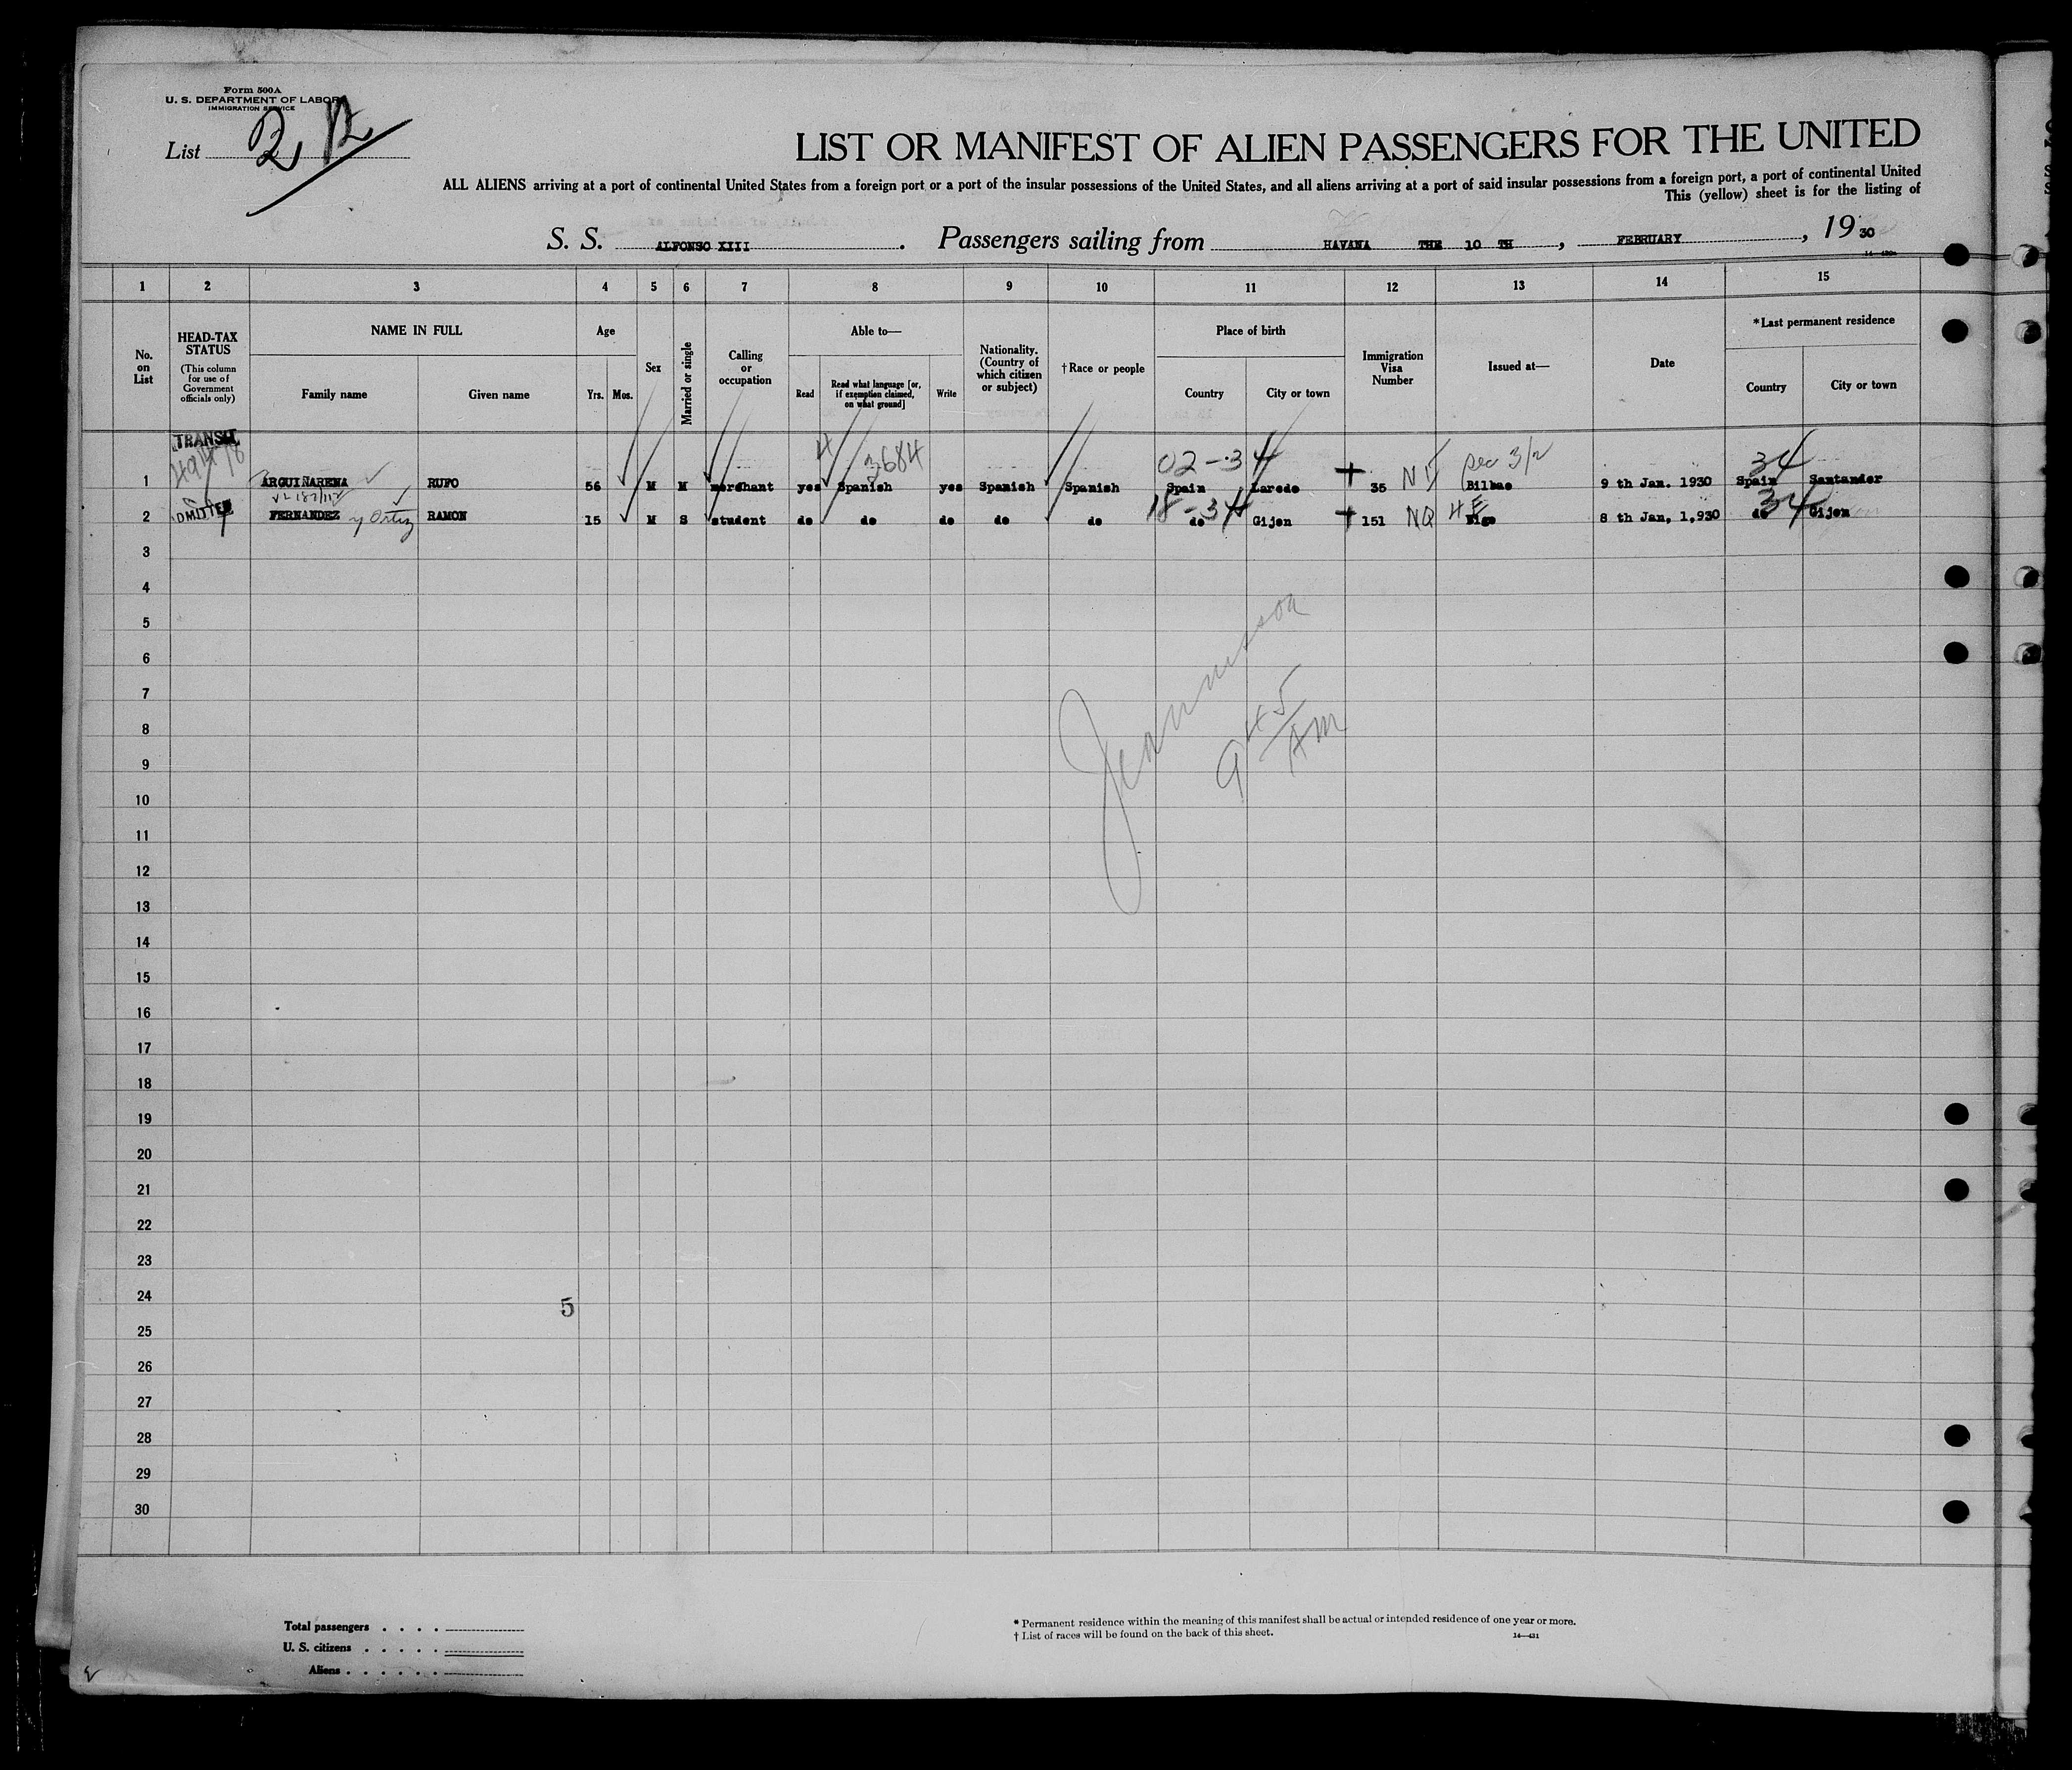 Form 500A
U. S. DEPARTMENT OF LABOR
IMMIGRATION SERVICE
List 2
LIST OR MANIFEST OF ALIEN PASSENGERS FOR THE UNITED
ALL ALIENS arriving at a port of continental United States from a foreign port or a port of the insular possessions of the United States, and all aliens arriving at a port of said insular possessions from a foreign port, a port of continental United
This (yellow) sheet is for the listing of
S. S. ALFONSO XIII. Passengers sailing from HAVANA THE 10 TH, FEBRUARY, 1930
1 2 3 4 5 6 7 8 9 10 11 12 13 14 15
No. on List
HEAD-TAX STATUS
(This column for use of Government officials only)
NAME IN FULL
Family name Given name
Age
Yrs. Mos.
Sex
Married or single
Calling or occupation
Able to—
Read
Read what language [or, if exemption claimed, on what ground]
Write
Nationality. (Country of which citizen or subject)
†Race or people
Place of birth
Country City or town
Immigration Visa Number
Issued at—
Date
*Last permanent residence
Country City or town
TRANSIT
4 3684 02-34 34
1 ARGUIÑARENA RUFO 56 M M merchant yes Spanish yes Spanish Spanish Spain Laredo 35 Bilbao 9 th Jan. 1930 Spain Santander
18-34 34
2 FERNANDEZ y Ortiz RAMON 15 M S student do do do do do do Gijon 151 NQ Vigo 8 th Jan, 1,930 do Gijon
3
4
5
6
7
8
9
9 45 AM
10
11
12
13
14
15
16
17
18
19
20
21
22
23
24
5
25
26
27
28
29
30
Total passengers . . . .
U. S. citizens . . . . .
Aliens . . . . . .
* Permanent residence within the meaning of this manifest shall be actual or intended residence of one year or more.
† List of races will be found on the back of this sheet.
14—431